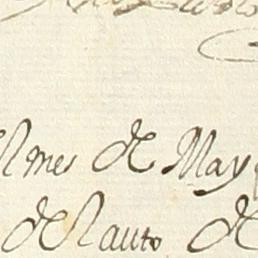 el mes de May
del auto de